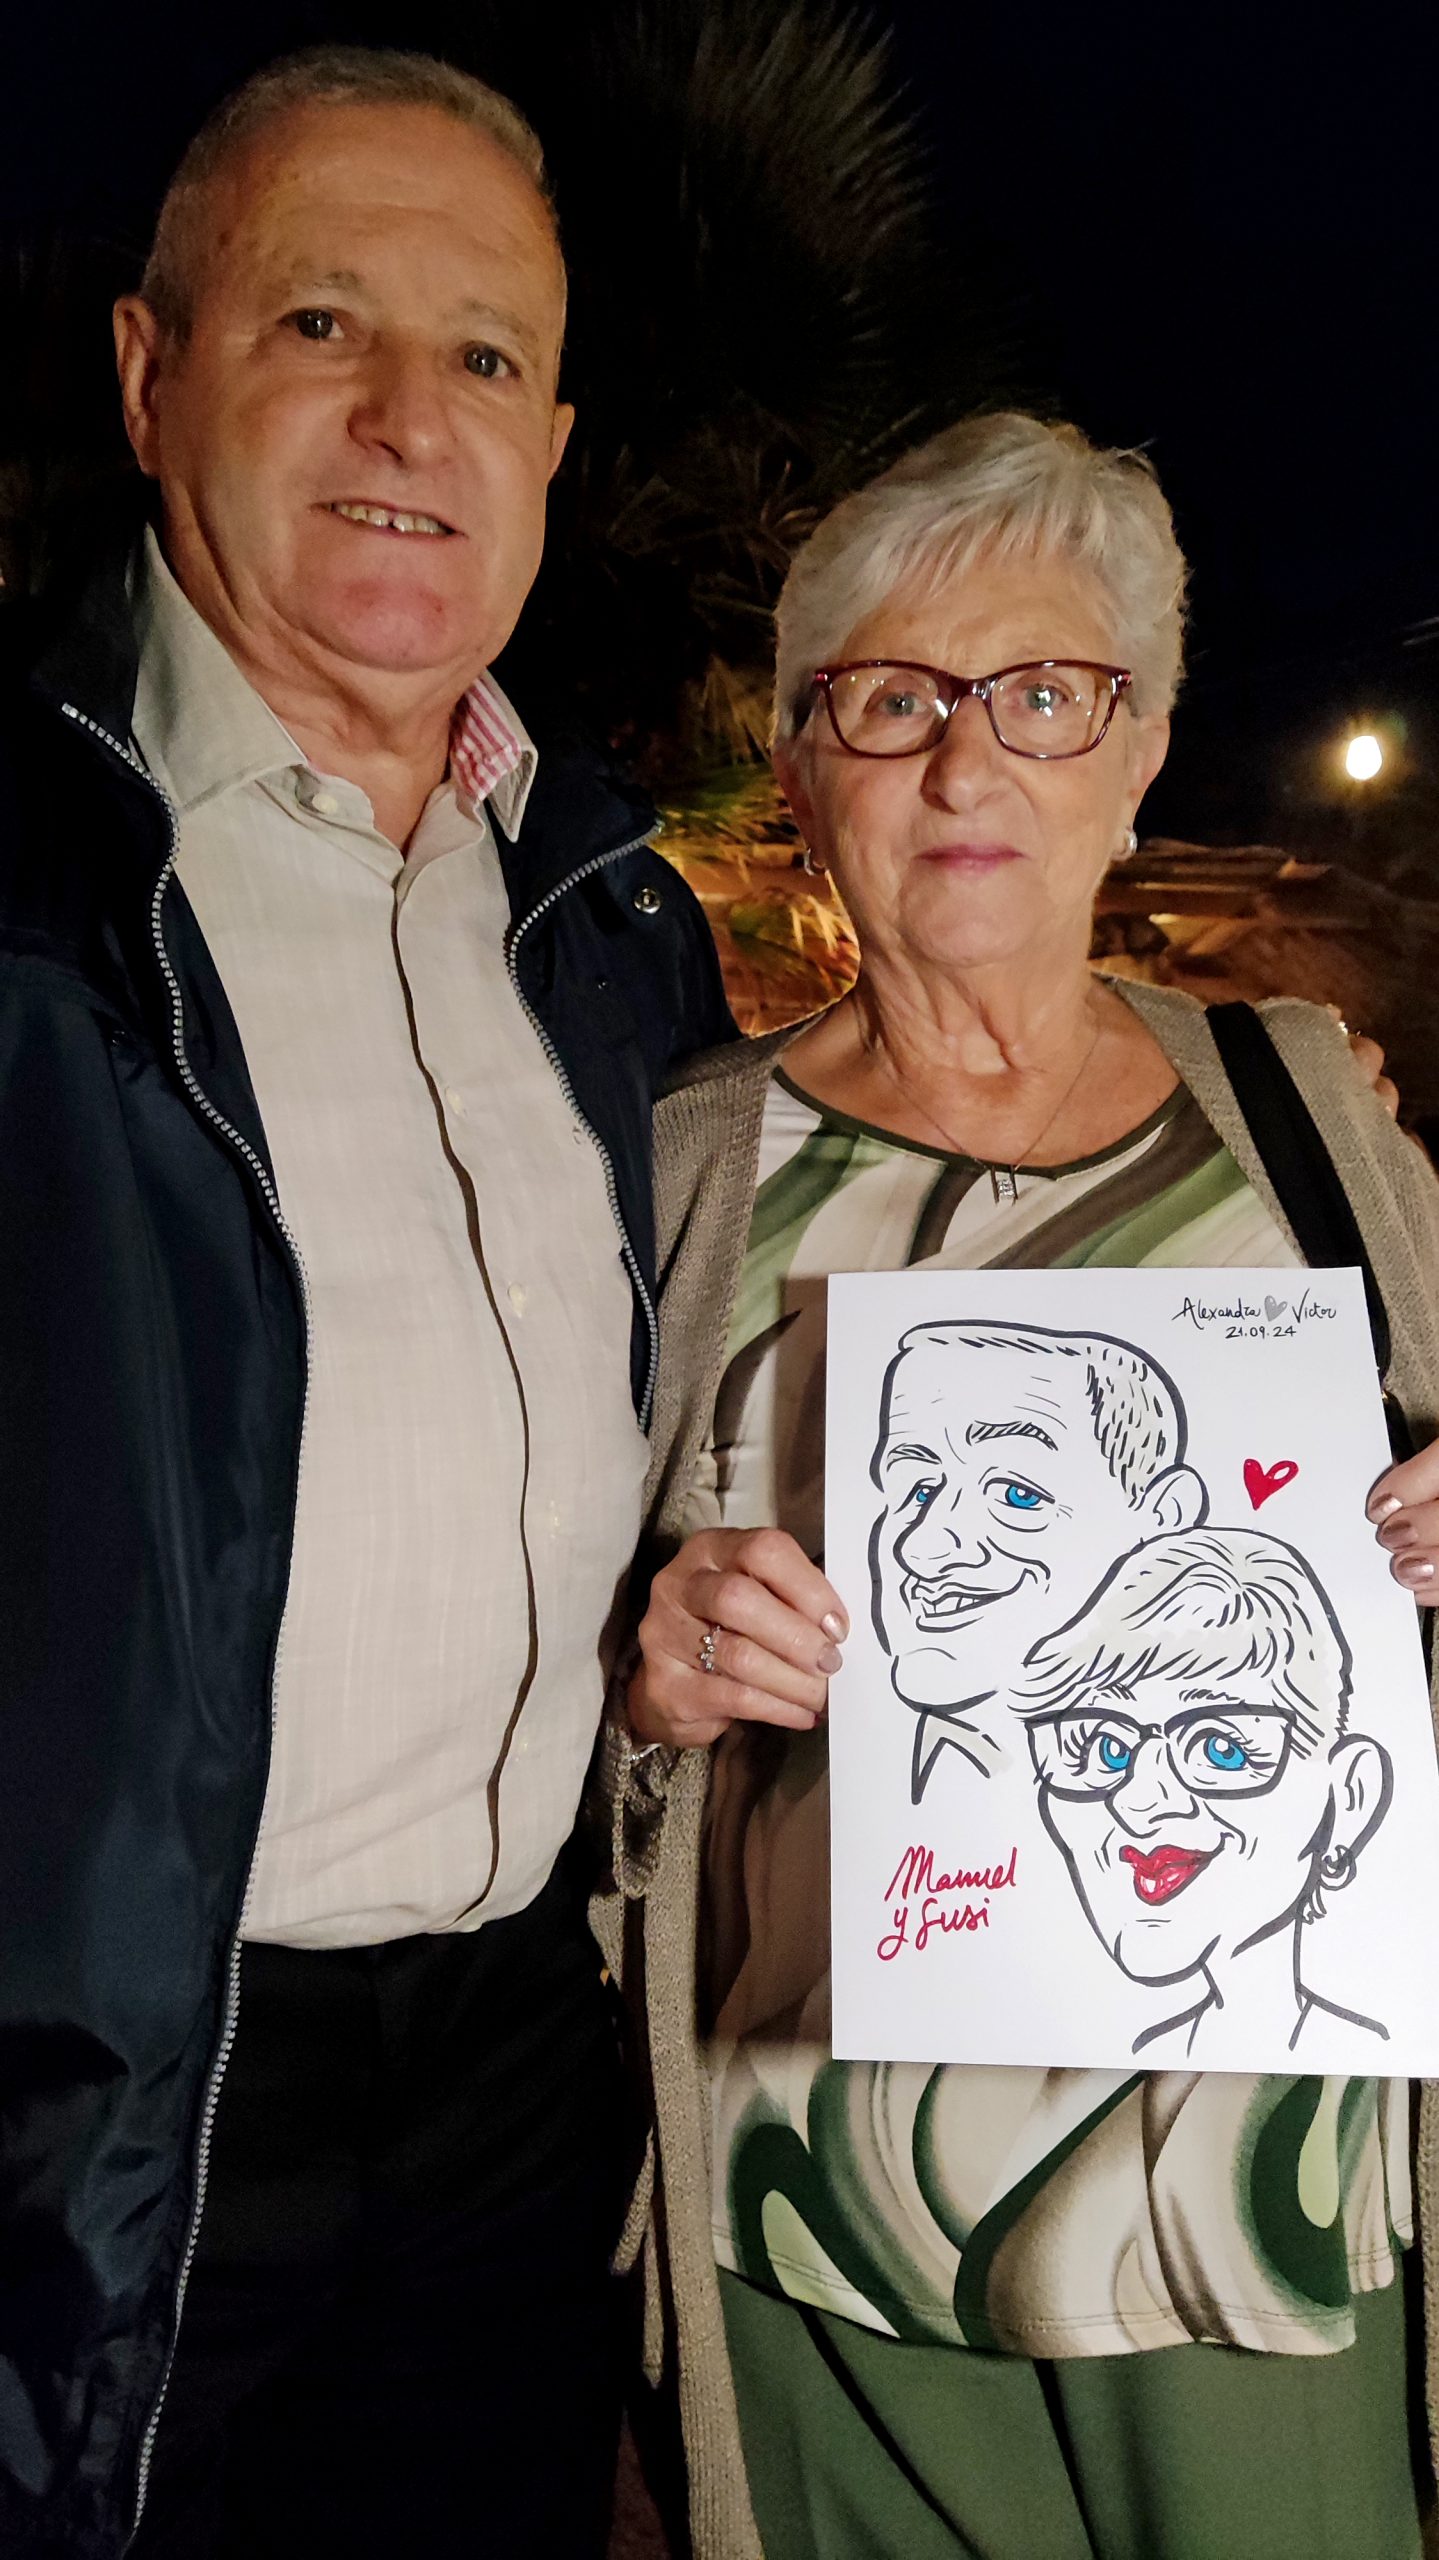 Alexandra Victor
21.09.24
Manuel
y Susi